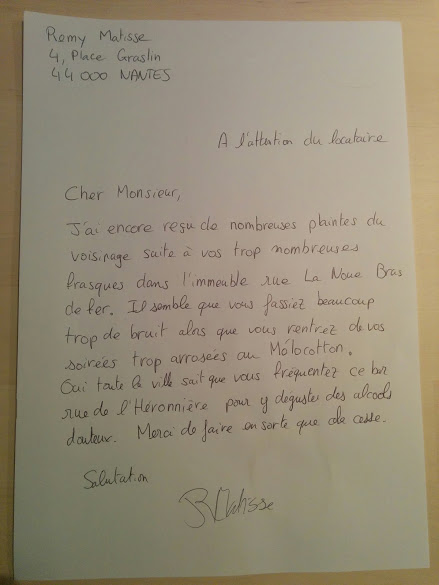 Remy Matisse
4, Place Graslin
44 000 NANTES
A l'attention du locataire
Cher Monsieur,
J'ai encore reçu de nombreuses plaintes du
voisinage suite à vos trop nombreuses
frasques dans l'immeuble rue La Noue Bras
de fer. Il semble que vous fassiez beaucoup
trop de bruit alors que vous rentrez de vos
soirées trop arrosées au Mélocotton.
Oui toute la ville sait que vous fréquentez ce bar
rue de l'Héronnière pour y deguster des alcools
douteux. Merci de faire en sorte que cela cesse.
Salutation
R Matisse